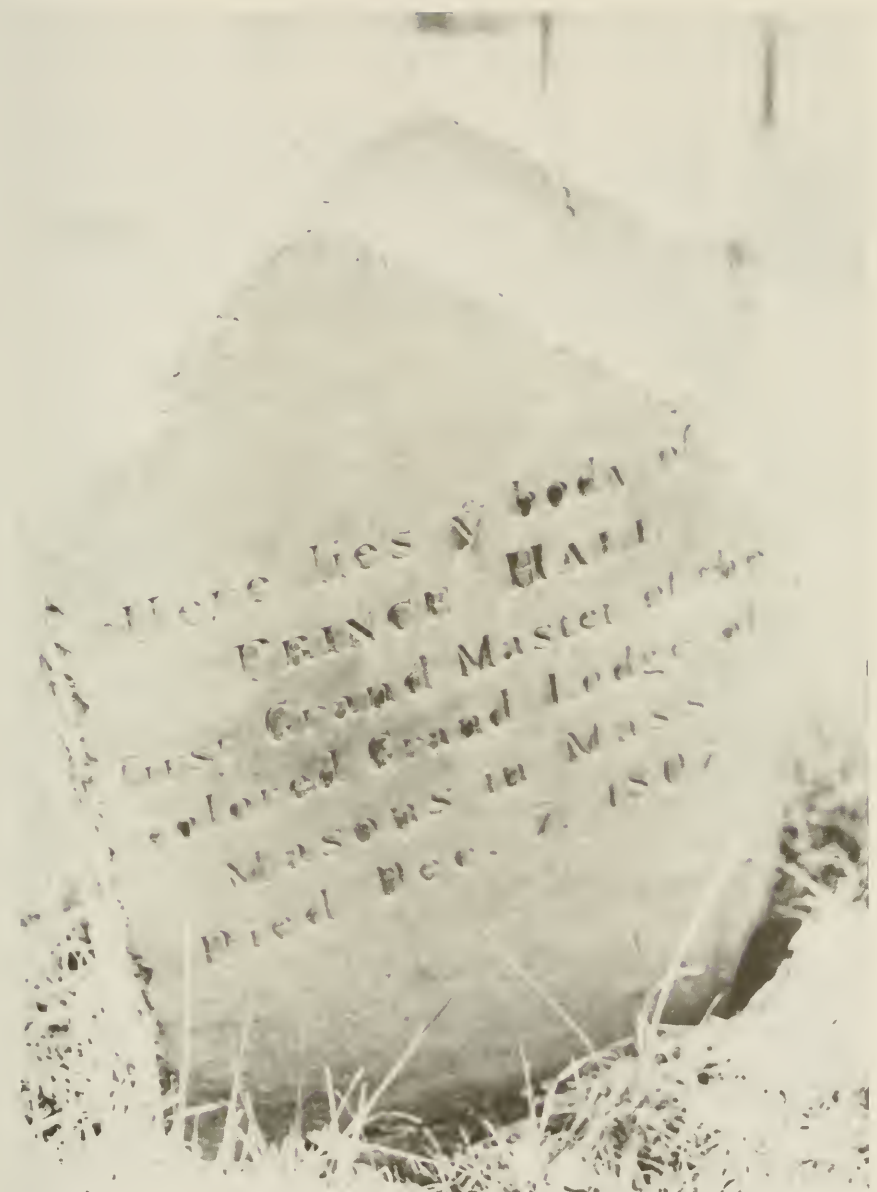 Here lies yᵉ body of
PRINCE HALL
first Grand Master of the
colored Grand Lodge of
Masons in Mass
Died Dec. 7, 1807